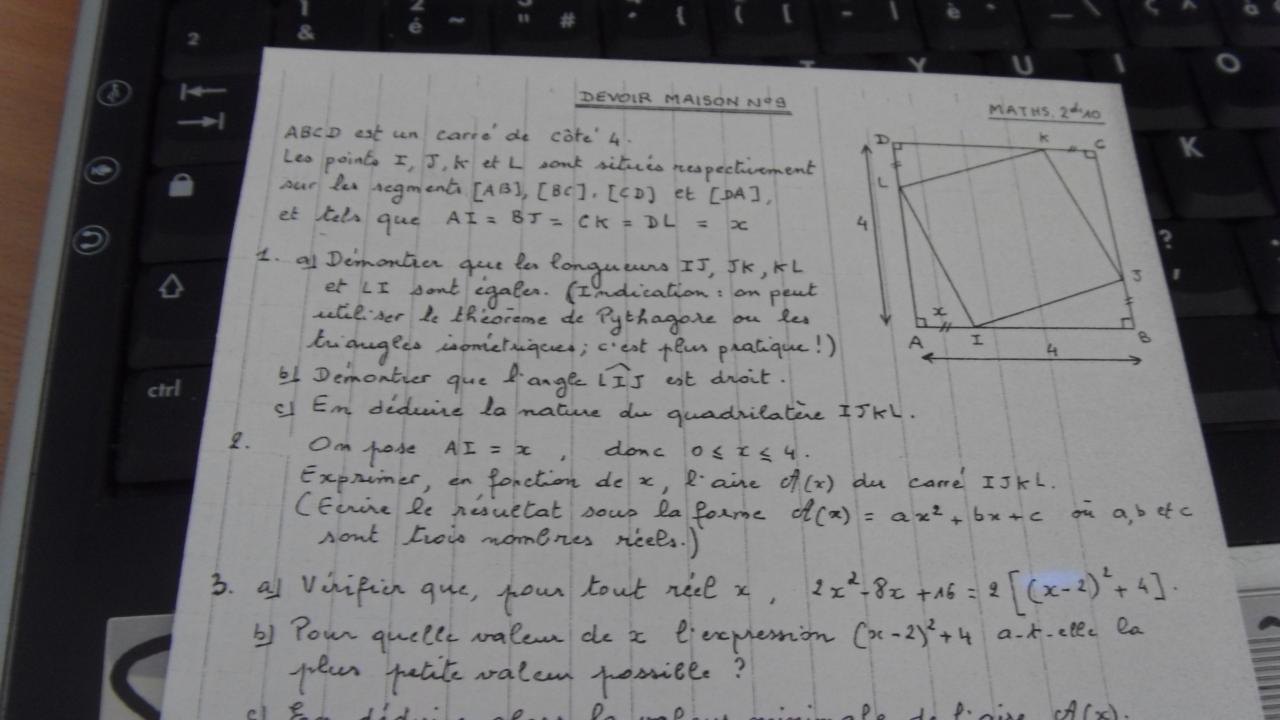 DEVOIR MAISON N°9
MATHS. 2de10
ABCD est un carré de côté 4.
Les points I, J, K et L sont situés respectivement
sur les segments [AB], [BC], [CD] et [DA],
et tels que AI = BJ = CK = DL = x
1. a) Démontrer que les longueurs IJ, JK, KL
et LI sont égales. (Indication : on peut
utiliser le théorème de Pythagore ou les
triangles isométriques ; c'est plus pratique !)
b) Démontrer que l'angle LIJ est droit.
c) En déduire la nature du quadrilatère IJKL.
2. On pose AI = x , donc 0 ⩽ x ⩽ 4.
Exprimer, en fonction de x, l'aire A(x) du carré IJKL.
(Ecrire le résultat sous la forme A(x) = ax² + bx + c où a, b et c
sont trois nombres réels.)
3. a) Vérifier que, pour tout réel x , 2x² - 8x + 16 = 2 [(x-2)² + 4].
b) Pour quelle valeur de x l'expression (x-2)² + 4 a-t-elle la
plus petite valeur possible ?
c) En déduire alors la valeur minimale de l'aire A(x).
D K C
L
4
J
x
A I B
4
2
1
&
2
é ~
" #
{
( [
- |
è
_ \
ç ^
à
Y U I O
K
?
,
ctrl